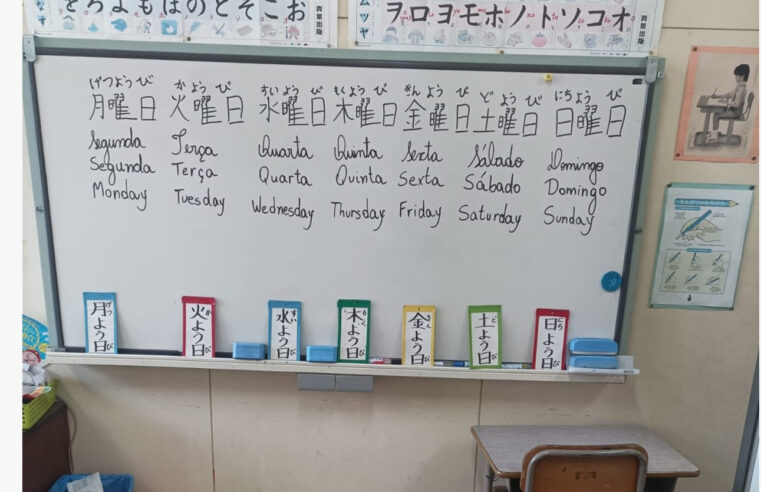 をろよもほのとそこお
青葉出版
ムツヤ
ヲロヨモホノトソコオ
青葉出版
げつようび かようび すいようび もくようび きんようび どようび にちようび
月曜日 火曜日 水曜日 木曜日 金曜日 土曜日 日曜日
Segunda Terça Quarta Quinta Sexta Sábado Domingo
Segunda Terça Quarta Quinta Sexta Sábado Domingo
Monday Tuesday Wednesday Thursday Friday Saturday Sunday
月よう日
火よう日
水よう日
木よう日
金よう日
土よう日
日よう日